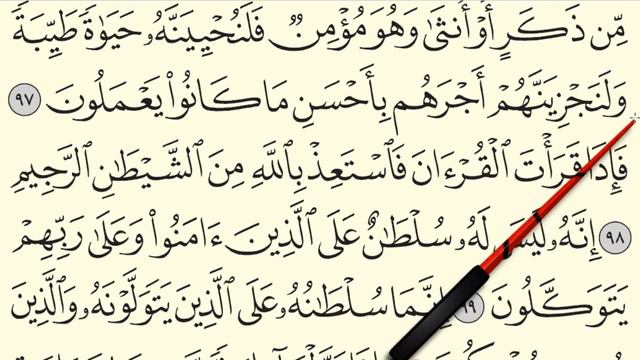 مِّن ذَكَرٍ أَوْ أُنثَىٰ وَهُوَ مُؤْمِنٌ فَلَنُحْيِيَنَّهُۥ حَيَوٰةً طَيِّبَةً
وَلَنَجْزِيَنَّهُمْ أَجْرَهُم بِأَحْسَنِ مَا كَانُوا۟ يَعْمَلُونَ ٩٧
فَإِذَا قَرَأْتَ ٱلْقُرْءَانَ فَٱسْتَعِذْ بِٱللَّهِ مِنَ ٱلشَّيْطَـٰنِ ٱلرَّجِيمِ
٩٨ إِنَّهُۥ لَيْسَ لَهُۥ سُلْطَـٰنٌ عَلَى ٱلَّذِينَ ءَامَنُوا۟ وَعَلَىٰ رَبِّهِمْ
يَتَوَكَّلُونَ ٩٩ إِنَّمَا سُلْطَـٰنُهُۥ عَلَى ٱلَّذِينَ يَتَوَلَّوْنَهُۥ وَٱلَّذِينَ